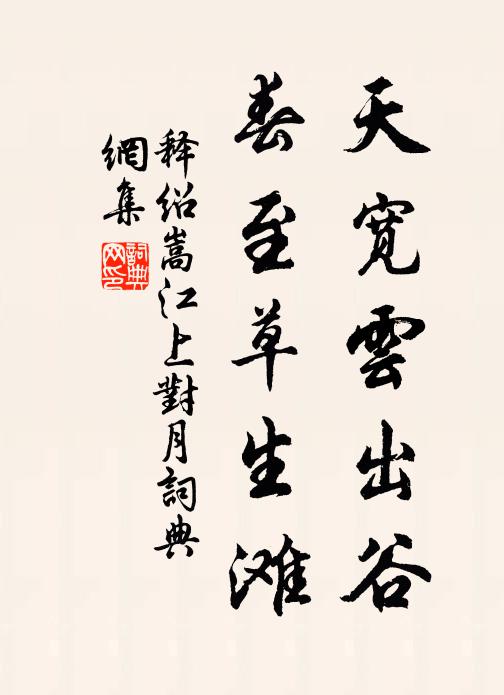 天寬雲出谷
春至草生滩
释绍嵩江上對月詞典
網集
詞典
网印